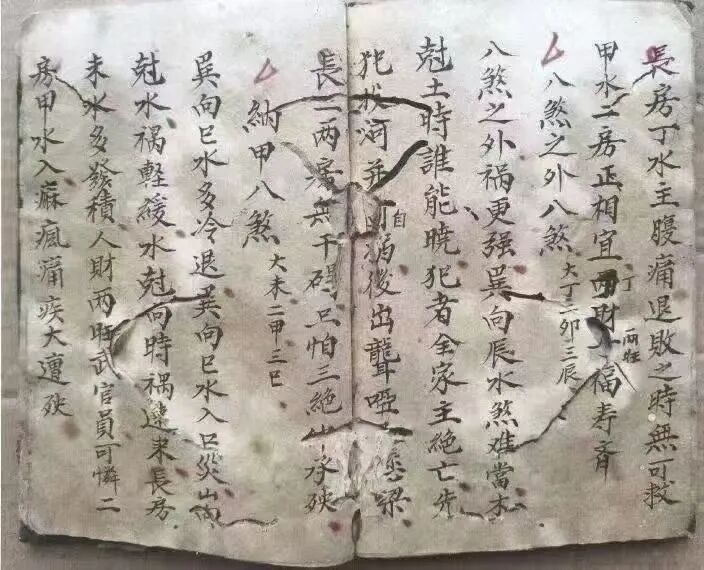 長房丁水主腹痛退敗之時無可救
甲水二房正相宜丁財兩旺福寿齊
八煞之外八煞 大丁二卯三辰
八煞之外祸更强巽向辰水煞难當木
尅土時誰能曉犯者全家主絕亡先
犯 并 自 病後出聾啞 梁
長二两房無干碍只怕三絕 承殃
納甲八煞 大未二甲三巳
巽向巳水多冷退巽向巳水入口災出向
尅水祸輕緩水尅向時祸速来長房
未水多發積人財两旺武官員可憐二
房甲水入麻瘋痛疾大遭殃